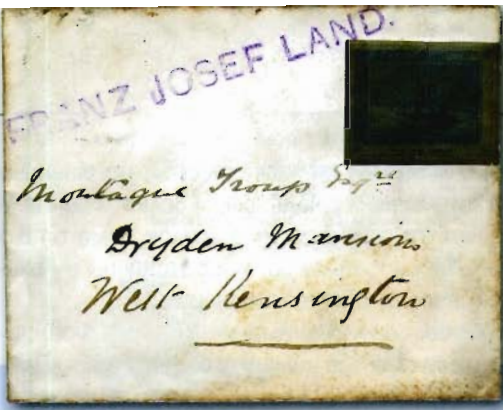 FRANZ JOSEF LAND.
Montague Troup Esqre
Dryden Mansions
West Kensington